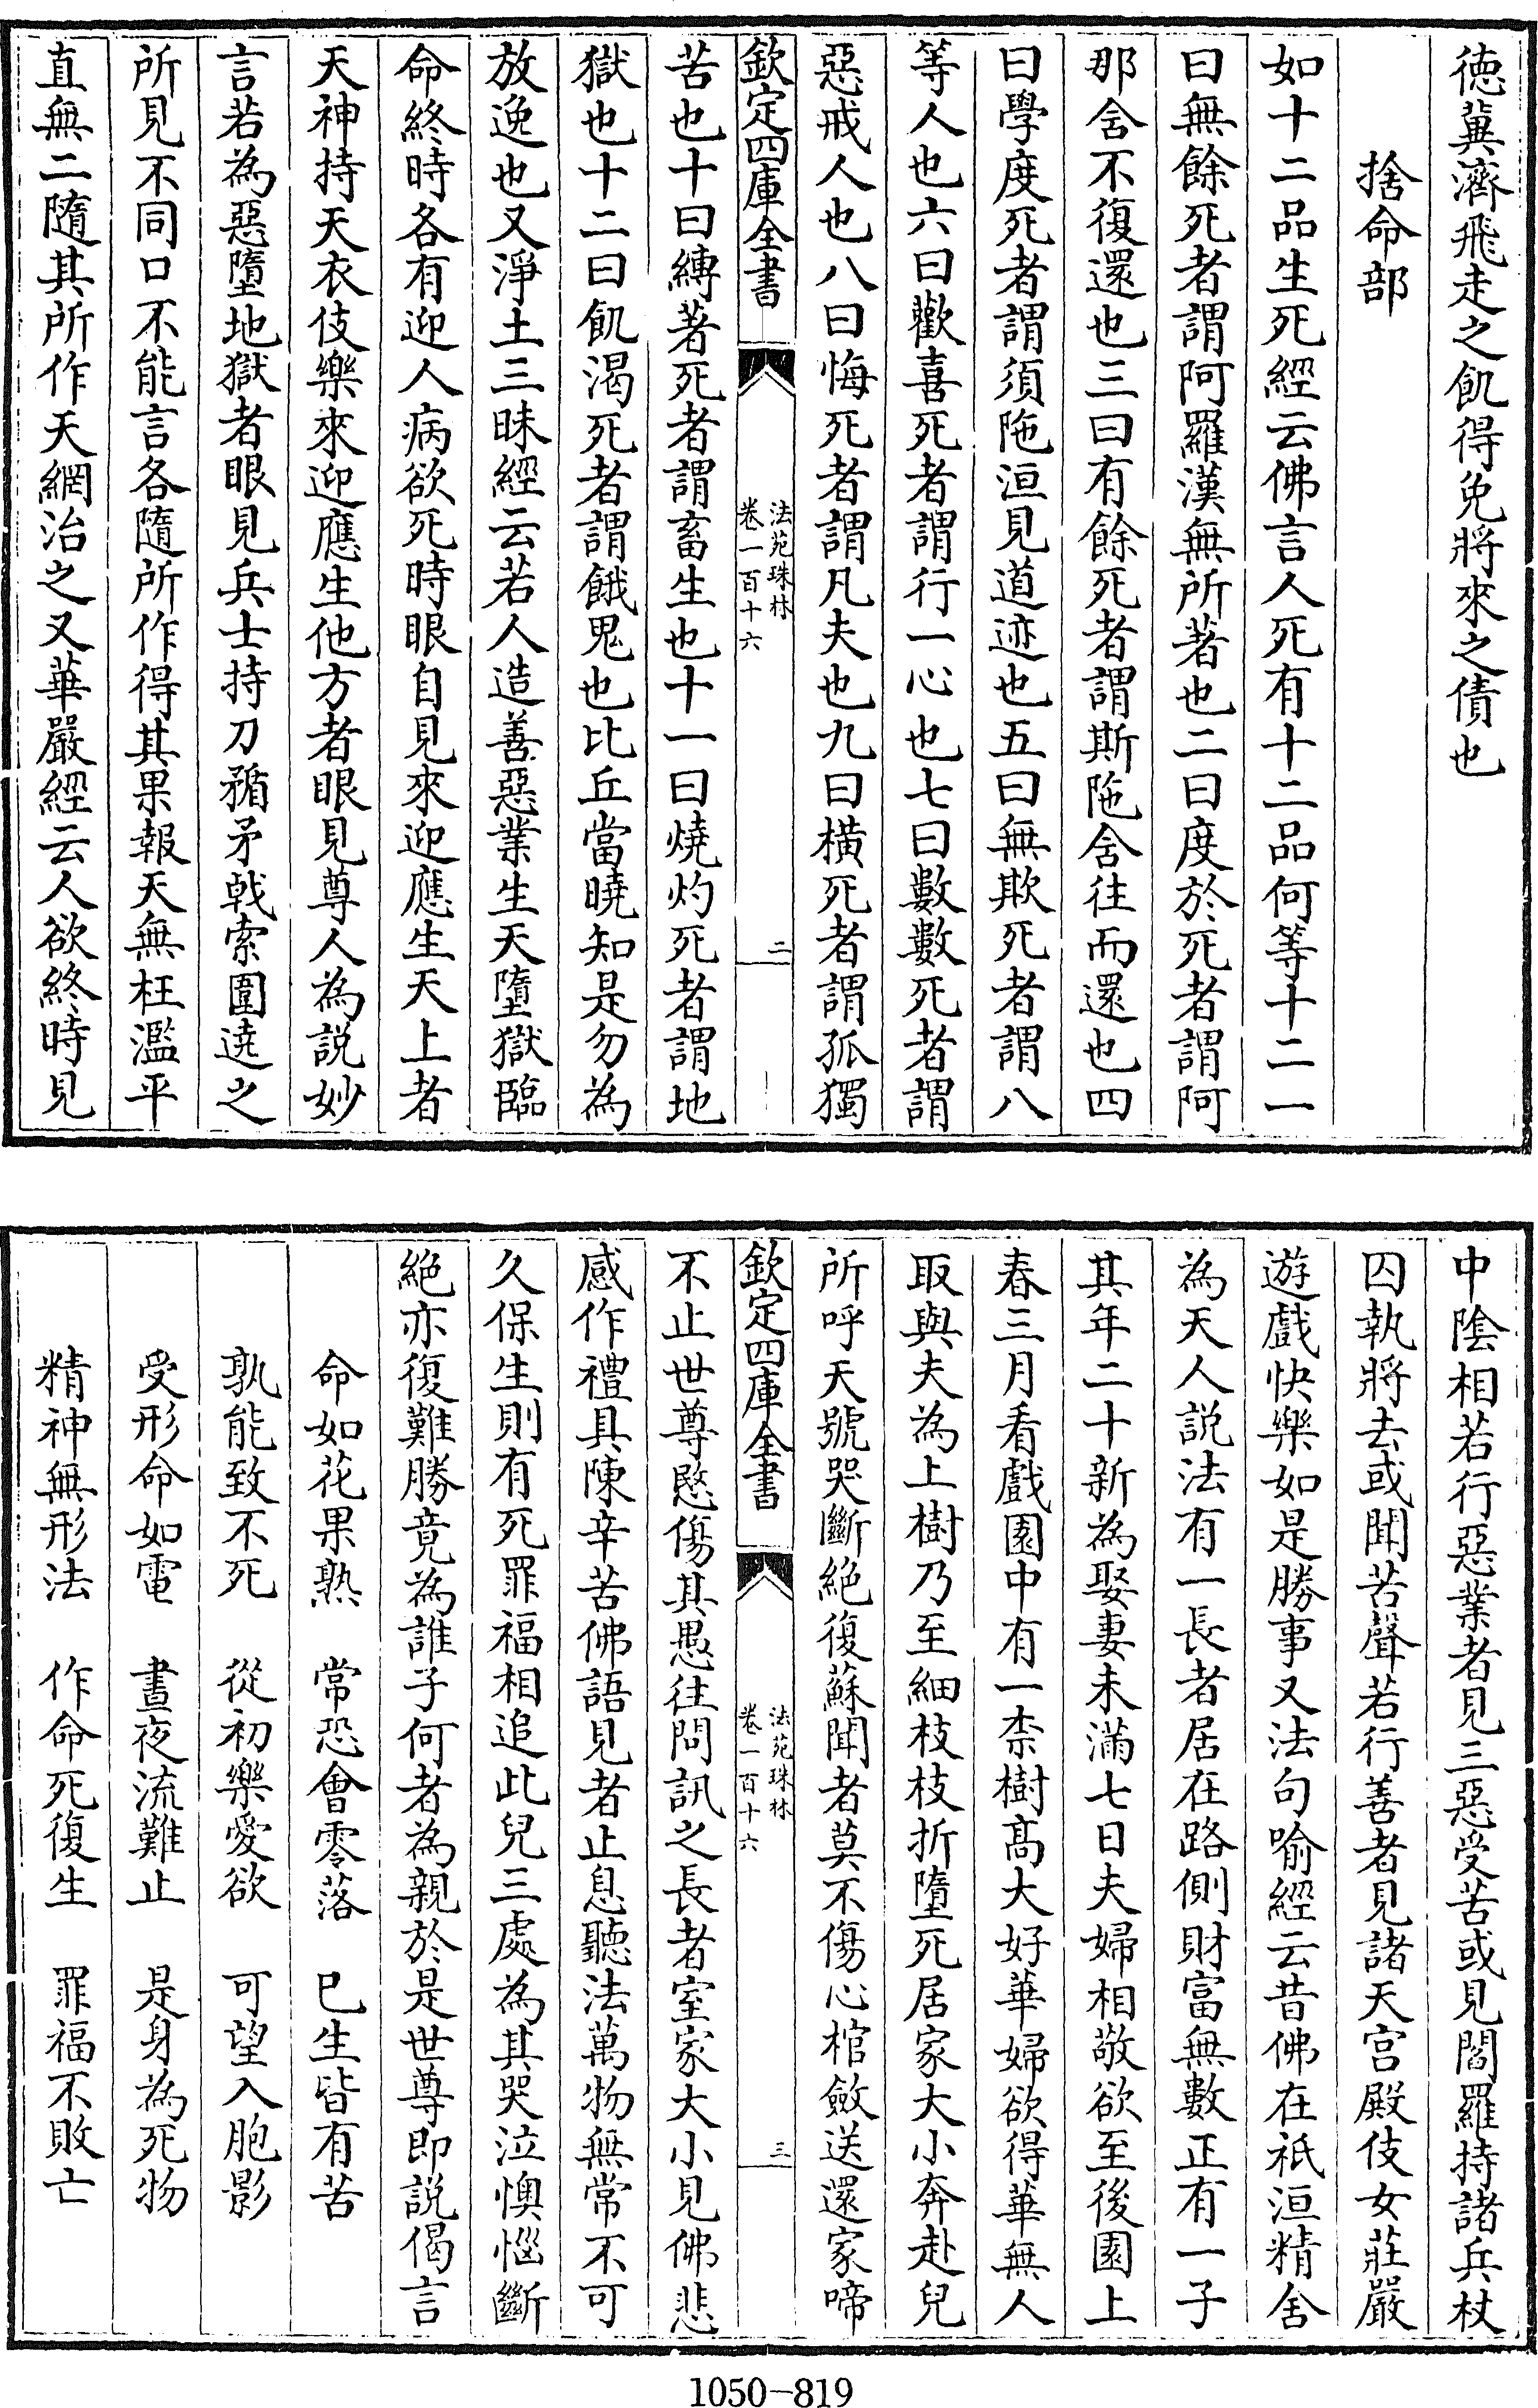 德冀濟飛走之飢得免將來之債也
捨命部
如十二品生死經云佛言人死有十二品何等十二一
曰無餘死者謂阿羅漢無所著也二曰度於死者謂阿
那舍不復還也三曰有餘死者謂斯陁舍往而還也四
曰學度死者謂須陁洹見道迹也五曰無欺死者謂八
等人也六曰歡喜死者謂行一心也七曰數數死者謂
惡戒人也八曰悔死者謂凡夫也九曰橫死者謂孤獨
欽定四庫全書
法苑珠林
卷一百十六
二
苦也十曰縛著死者謂畜生也十一曰燒灼死者謂地
獄也十二曰飢渴死者謂餓鬼也比丘當曉知是勿為
放逸也又淨土三昧經云若人造善惡業生天墮獄臨
命終時各有迎人病欲死時眼自見來迎應生天上者
天神持天衣伎樂來迎應生他方者眼見尊人為說妙
言若為惡墮地獄者眼見兵士持刀楯矛戟索圍遶之
所見不同口不能言各隨所作得其果報天無枉濫平
直無二隨其所作天網治之又華嚴經云人欲終時見
中陰相若行惡業者見三惡受苦或見閻羅持諸兵杖
囚執將去或聞苦聲若行善者見諸天宮殿伎女莊嚴
遊戲快樂如是勝事又法句喻經云昔佛在祇洹精舍
為天人說法有一長者居在路側財富無數正有一子
其年二十新為娶妻未滿七日夫婦相敬欲至後園上
春三月看戲園中有一柰樹高大好華婦欲得華無人
取與夫為上樹乃至細枝枝折墮死居家大小奔赴兒
所呼天號哭斷絕復蘇聞者莫不傷心棺斂送還家啼
欽定四庫全書
法苑珠林
卷一百十六
三
不止世尊愍傷其愚往問訊之長者室家大小見佛悲
感作禮具陳辛苦佛語見者止息聽法萬物無常不可
久保生則有死罪福相追此兒三處為其哭泣懊惱斷
絕亦復難勝竟為誰子何者為親於是世尊即說偈言
命如花果熟　常恐會零落　已生皆有苦
孰能致不死　從初樂愛欲　可望入胞影
受形命如電　晝夜流難止　是身為死物
精神無形法　作命死復生　罪福不敗亡
1050-819